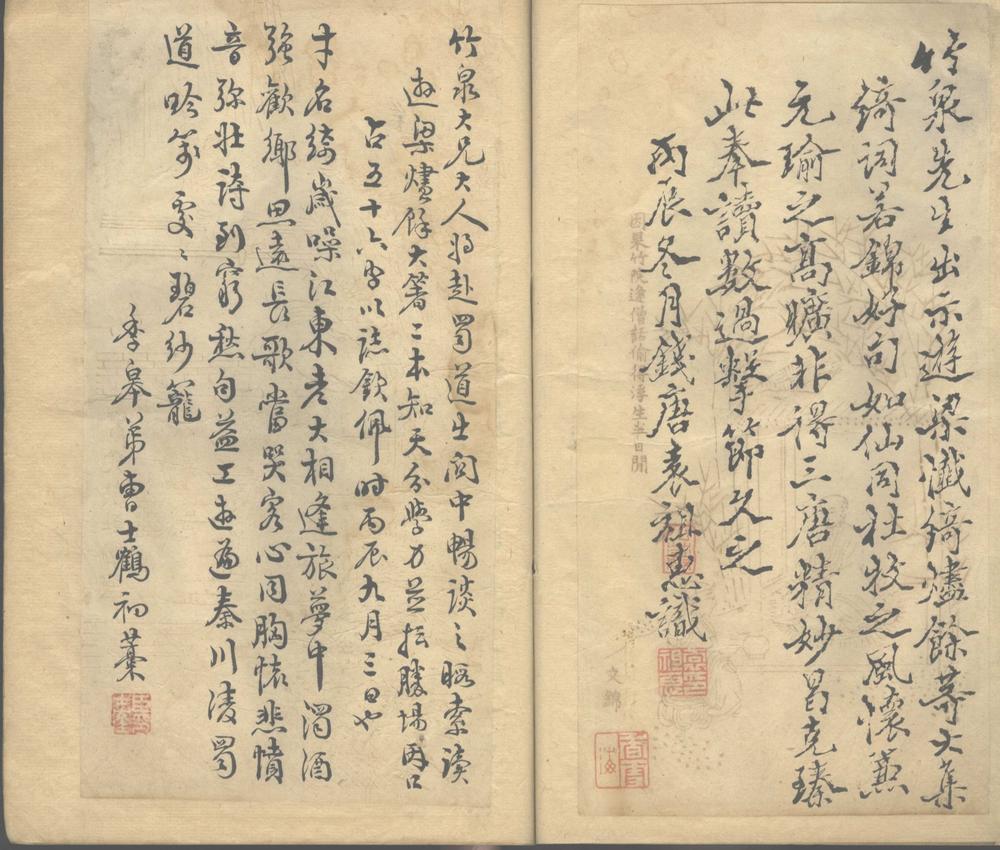 竹泉先生出示遊梁懺錡燼餘等大集
錡詞若錦好句如仙同杜牧之風懷兼
元瑜之高曠非得三唐精妙曷克臻
此奉讀數過擊節久之
丙辰冬月錢唐袁祖惠識
因果竹院逢僧話偷得浮生半日閒
文錦
竹泉大兄大人將赴蜀道出關中暢談之暇索讀
遊梁燼餘大著二本知天分學力並擅勝場因口
占五十六字以誌欽佩時丙辰九月三日也
才名綺歲噪江東老大相逢旅夢中濁酒
強歡鄉思遠長歌當哭客心同胸懷悲憤
音弥壯詩到窮愁句益工遊遍秦川淩蜀
道吟箋處處碧紗籠
季皋弟曹士鶴初藁